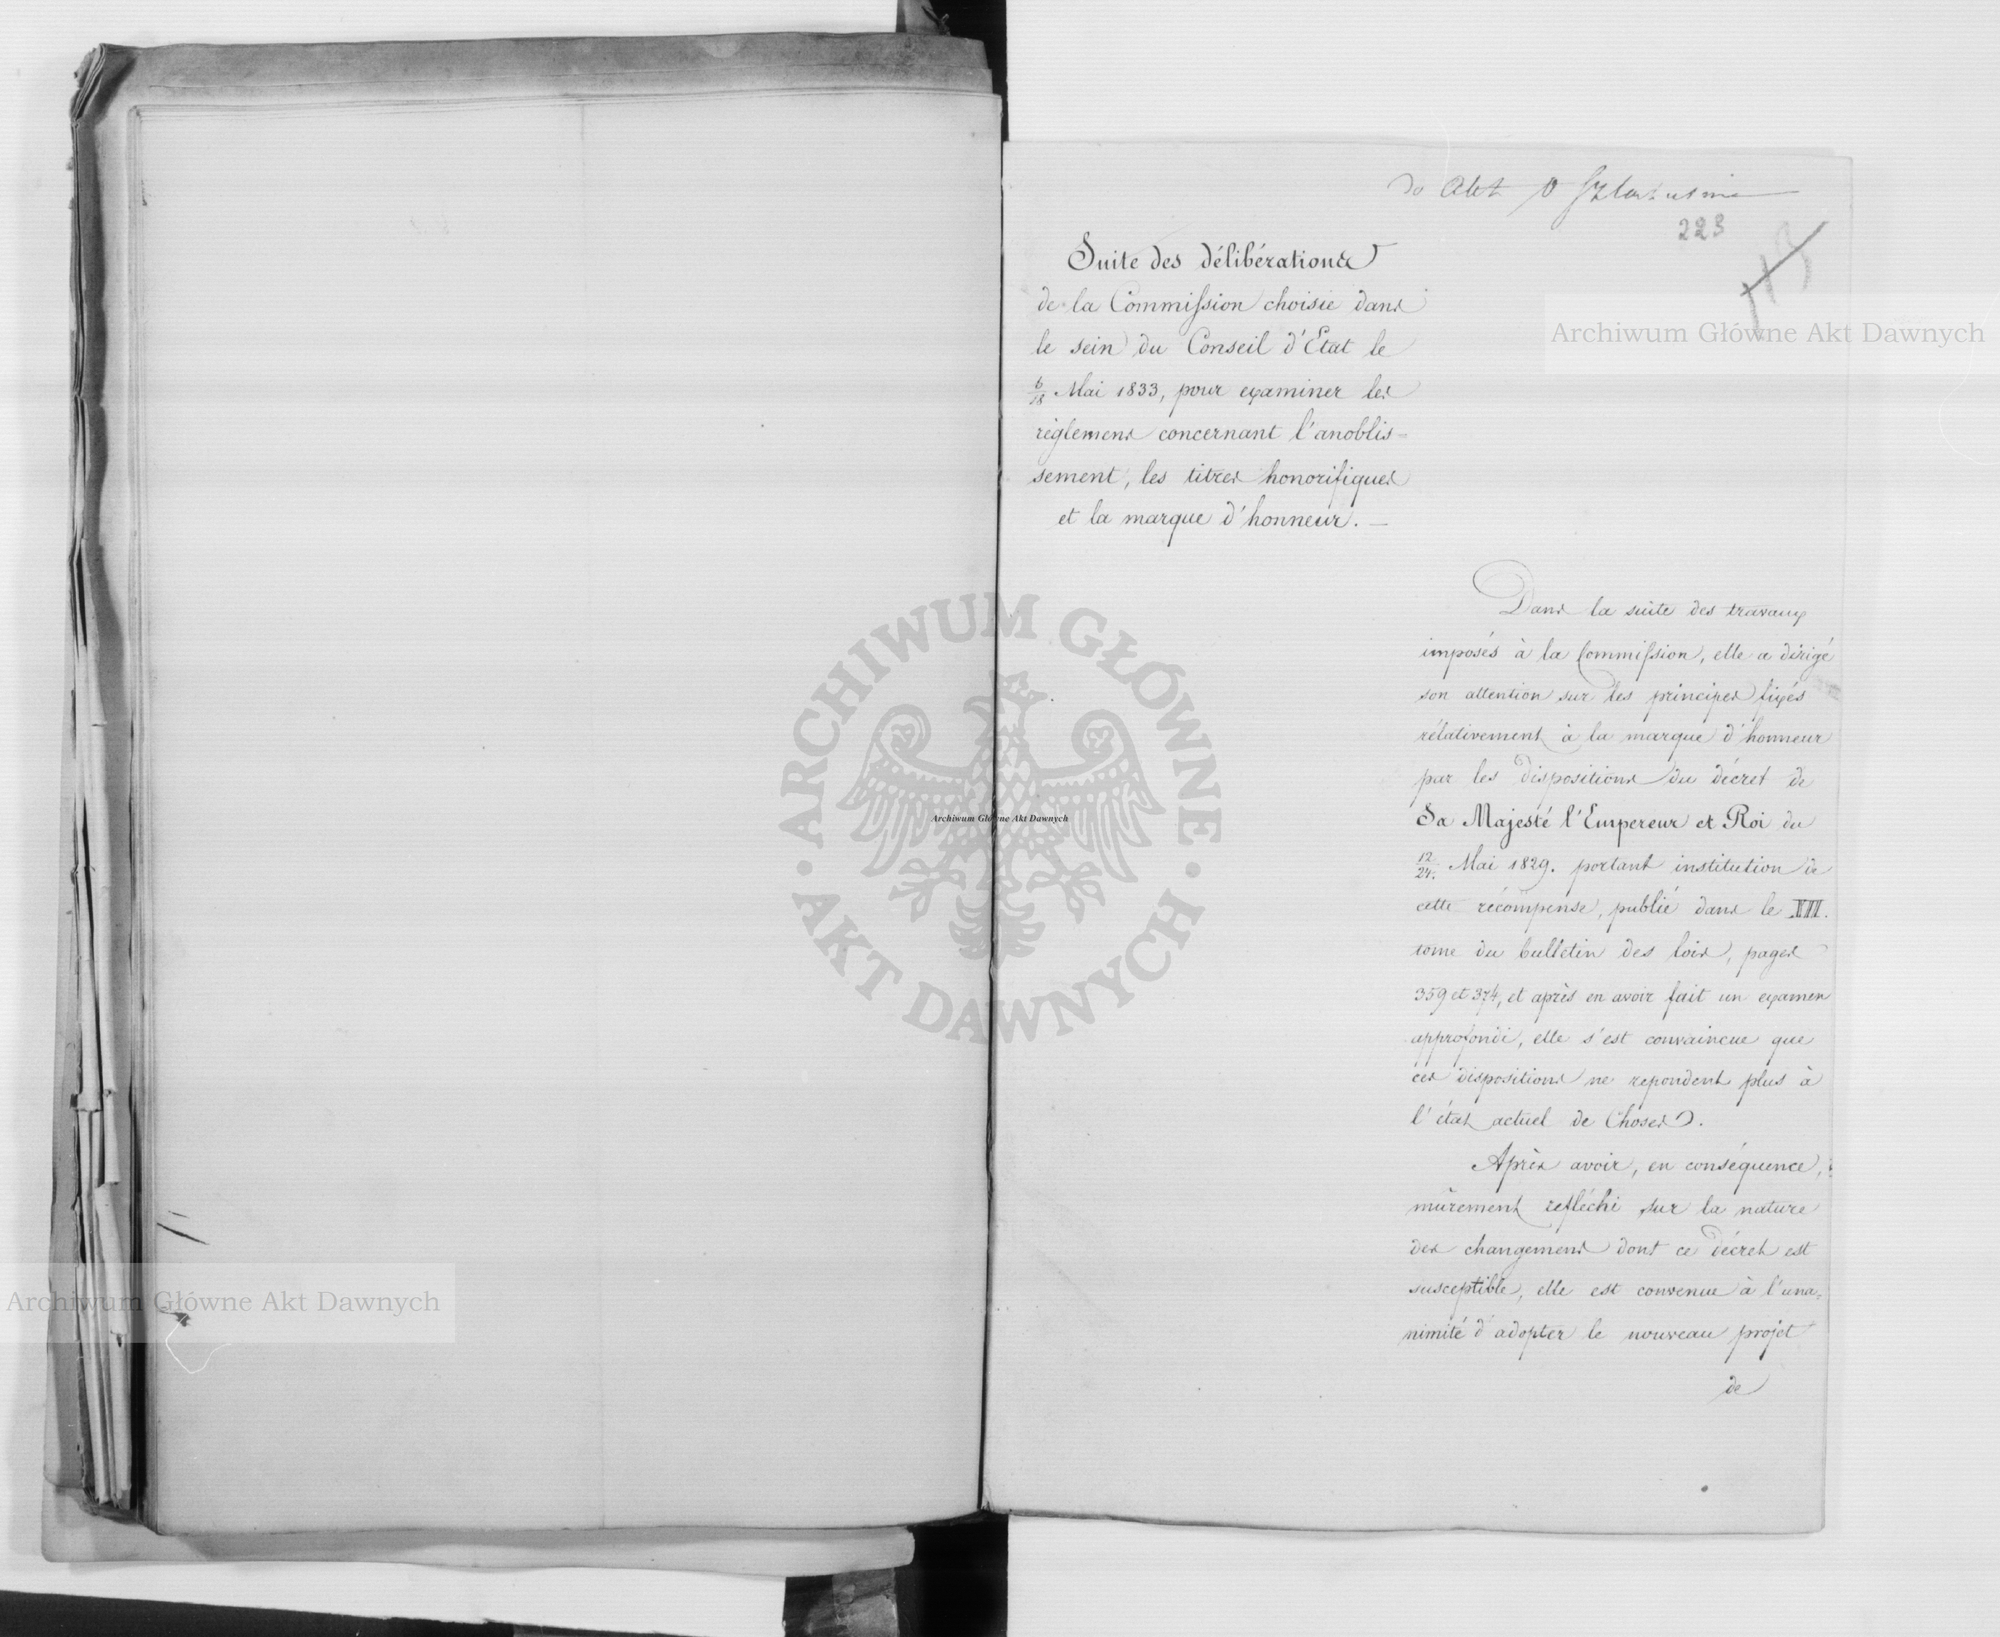 do Akt o Szlachectwie
223
Suite des délibérations
de la Commission choisie dans
le sein du Conseil d'Etat le
6/18 Mai 1833, pour examiner les
règlemens concernant l'anoblis-
sement, les titres honorifiques
et la marque d'honneur. —
Dans la suite des travaux
imposés à la Commission, elle a dirigé
son attention sur les principes fixés
rélativement à la marque d'honneur
par les dispositions du décret de
Sa Majesté l'Empereur et Roi du
12/24. Mai 1829. portant institution de
cette récompense, publié dans le XII.
tome du bulletin des lois, pages
359 et 374, et après en avoir fait un examen
approfondi, elle s'est convaincue que
ces dispositions ne repondent plus à
l'état actuel de Choses.
Après avoir, en conséquence,
mûrement refléchi sur la nature
des changemens dont ce décret est
susceptible, elle est convenue à l'una-
nimité d'adopter le nouveau projet
de
Archiwum Główne Akt Dawnych
Archiwum Główne Akt Dawnych
Archiwum Główne Akt Dawnych
ARCHIWUM GŁÓWNE
AKT DAWNYCH